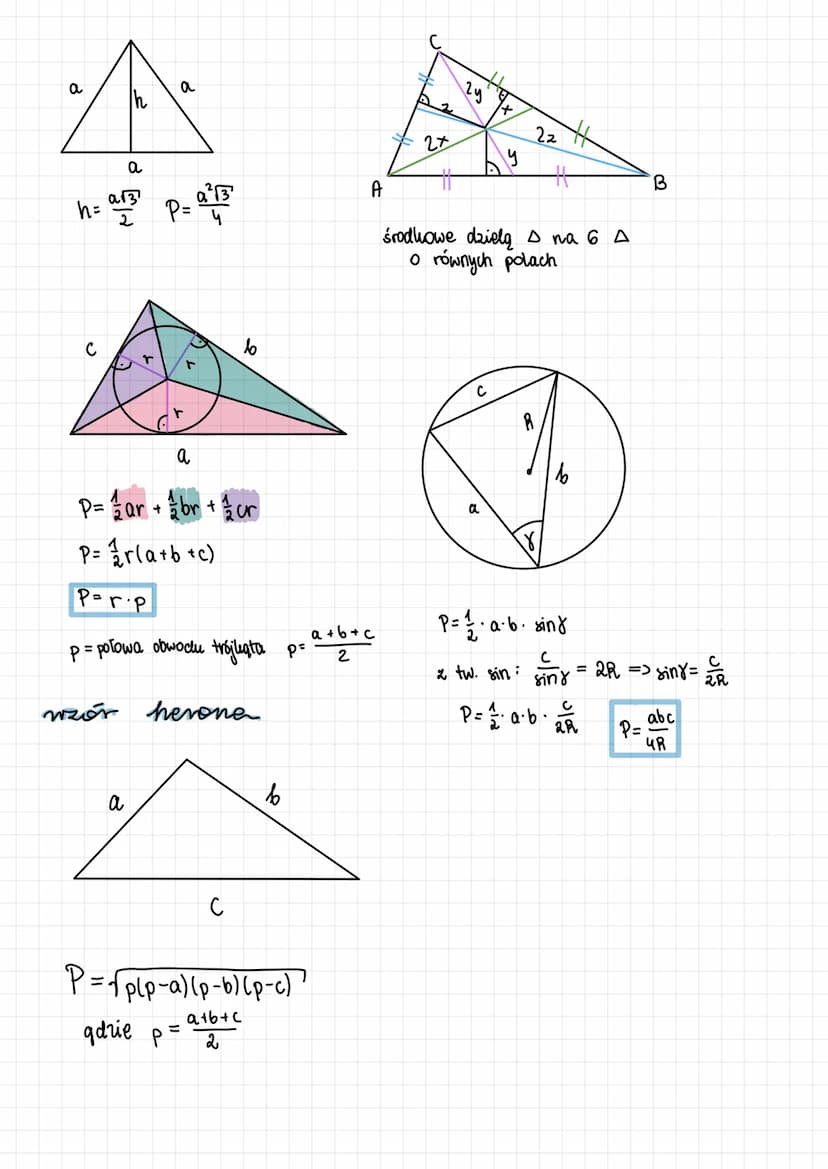 a
a
h
a
h = a√3/2 P = a²√3/4
C
2y
x
z
2x
2z
y
A
B
środkowe dzielą △ na 6 △
o równych polach
c
b
r
r
r
a
P = 1/2 ar + 1/2 br + 1/2 cr
P = 1/2 r(a+b+c)
P = r · p
p = połowa obwodu trójkąta p = a+b+c/2
c
R
b
a
γ
P = 1/2 · a · b · sinγ
z tw. sin: c/sinγ = 2R => sinγ = c/2R
P = 1/2 · a·b · c/2R P = abc/4R
wzór herona
a
b
c
P = √p(p-a)(p-b)(p-c)
gdzie p = a+b+c/2